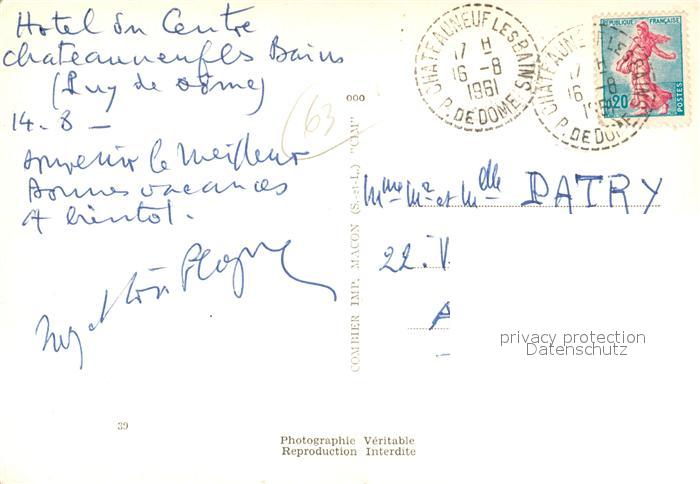 Hotel du Centre
Chateauneuf les Bains
(Puy de Dôme)
14.8 -
Souvenir le Meilleur
Bonnes vacances
A bientot.
(63
000
CHATEAUNEUF LES BAINS
17 H
16 -8
1961
P. DE DOME
CHATEAUNEUF LES BAINS
17
16 -8
P. DE DOME
REPUBLIQUE FRANÇAISE
0,20
POSTES
Mme Mr et Mlle PATRY
22. V
COMBIER IMP. MACON (S.-et-L.) "CIM"
privacy protection
Datenschutz
39
Photographie Véritable
Reproduction Interdite